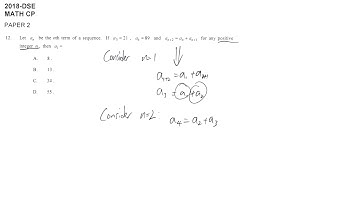 2018-DSE
MATH CP
PAPER 2
12. Let aₙ be the nth term of a sequence. If a₃ = 21, a₆ = 89 and aₙ₊₂ = aₙ + aₙ₊₁ for any positive
integer n, then a₁ =
A. 8.
B. 13.
C. 24.
D. 55.
Consider n=1
a₁₊₂ = a₁ + a₁₊₁
a₃ = a₁ + a₂
Consider n=2
a₄ = a₂ + a₃